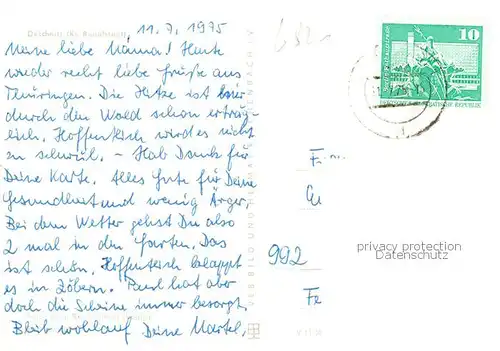 11.7.1975
Meine liebe Mama! Heute
wieder recht liebe Grüße aus
Thüringen. Die Hitze ist hier
durch den Wald schon erträg-
lich. Hoffentlich wird es nicht
zu schwül. – Hab Dank für
Deine Karte. Alles Gute für Deine
Gesundheit und wenig Ärger.
Bei dem Wetter gehst Du also
2 mal in den Garten. Das
ist schön. Hoffentlich klappt
es in Zöbern. Paul hat aber
doch die Scheine immer besorgt.
Bleib wohlauf Deine Martel.
VEB BILD UND HEIMAT REICHENBACH I V
10
DEUTSCHE DEMOKRATISCHE REPUBLIK
Fr
992
Fr
privacy protection
Datenschutz